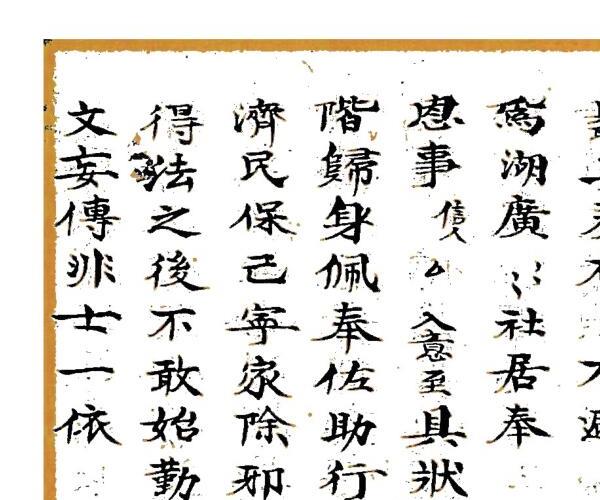 爲湖廣社居奉
恩事信人厶入意至具狀
階歸身佩奉佐助行
濟民保己寧家除邪
得法之後不敢始勤
文妄傳非士一依